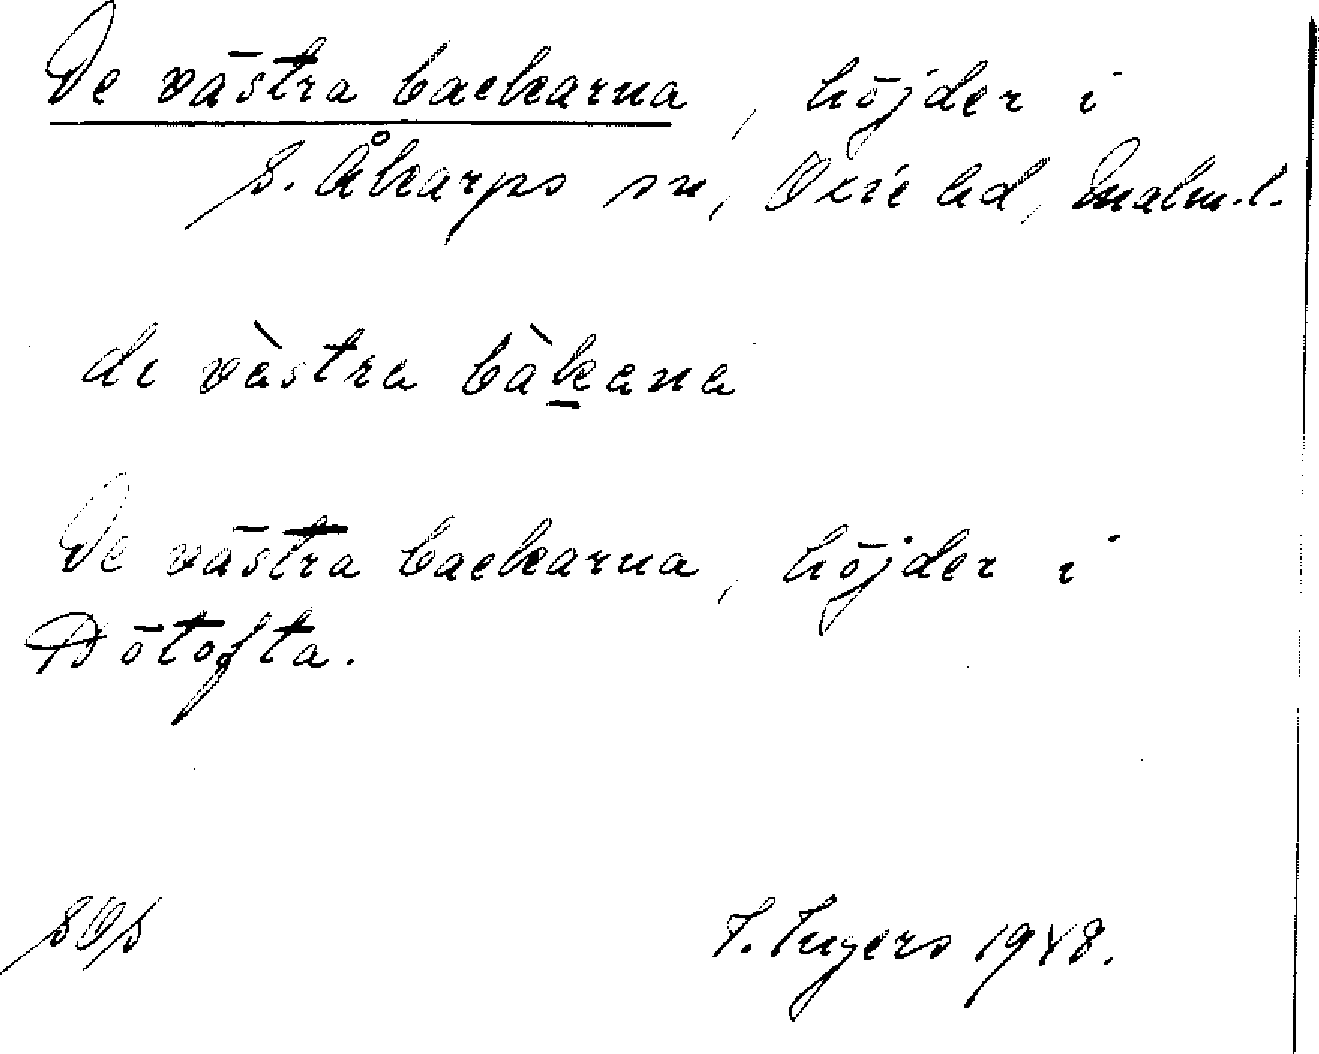 De västra backarna, höjder i
S. Åkarps sn, Oxie hd, Malm.l.
di vàstra bàkana
De västra backarna, höjder i
Dötofta.
SOS
I. Ingers 1948.